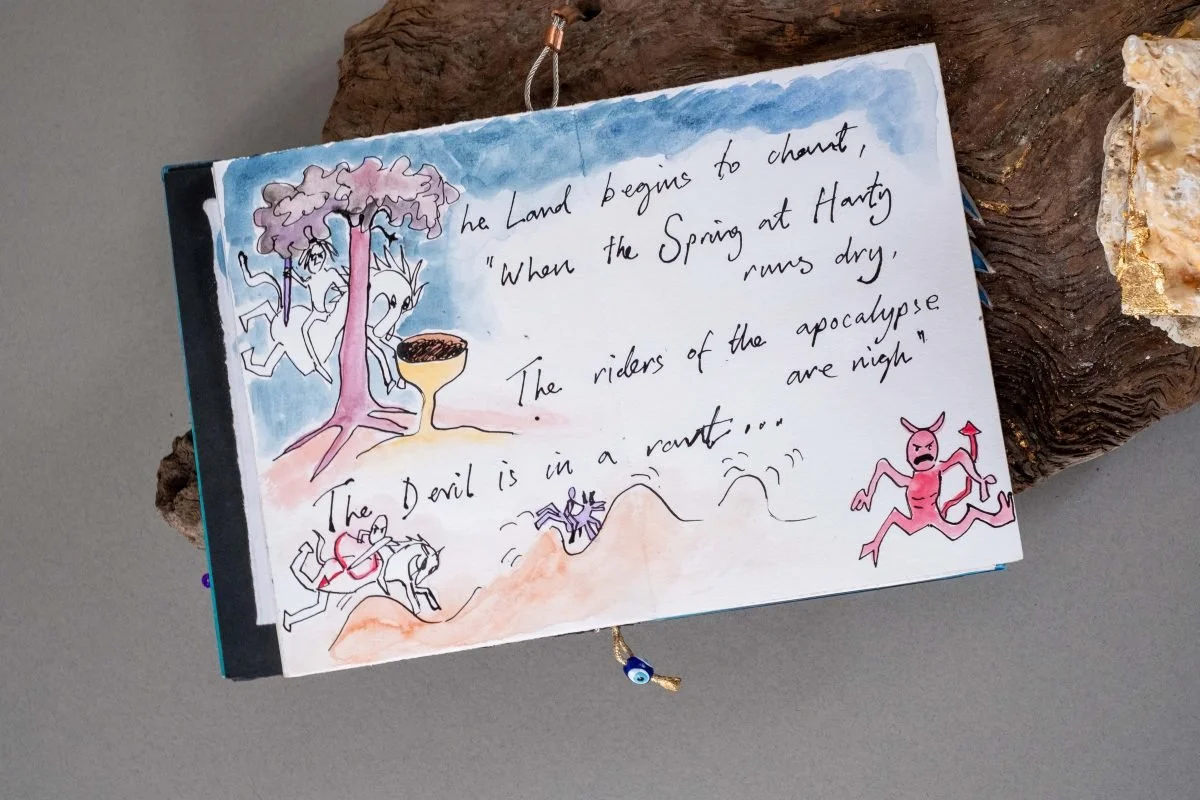 The Land begins to chant,
"When the Spring at Harty
runs dry,
The riders of the apocalypse
are nigh"
The Devil is in a rant...